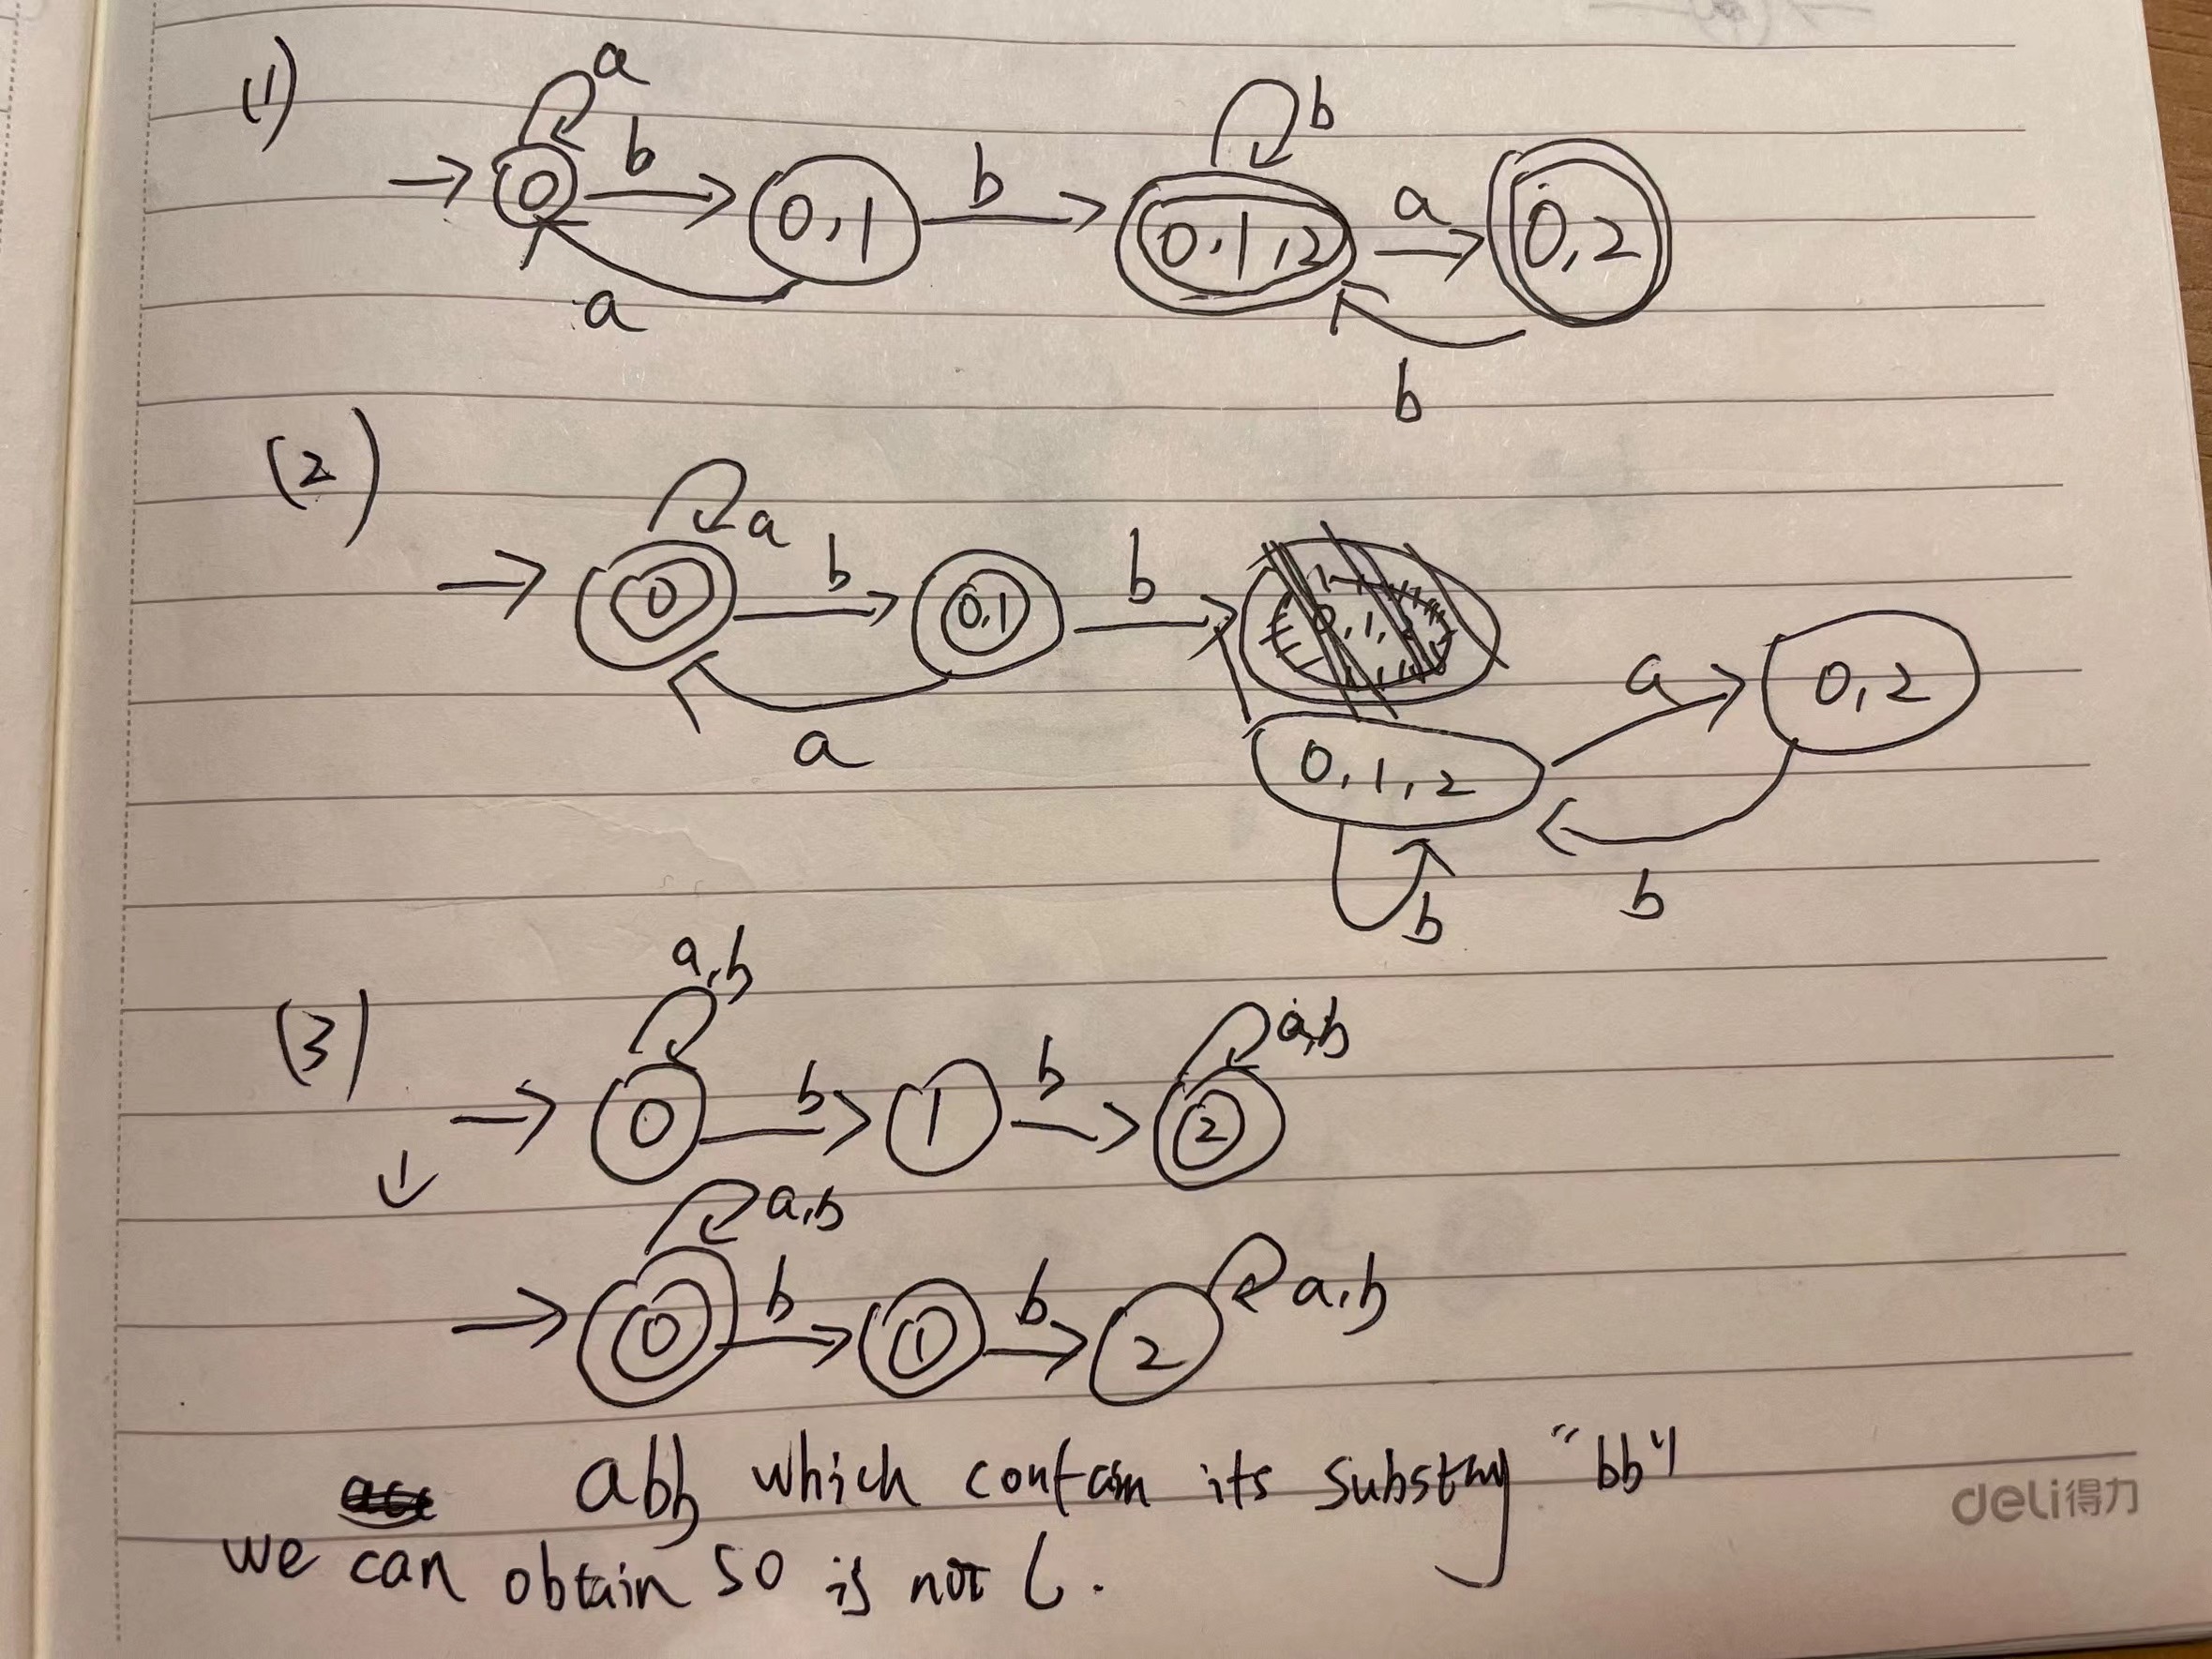 (1)
a
b
b
b
a
0
0,1
0,1,2
0,2
a
b
(2)
a
b
b
0
0,1
a
0,2
a
0,1,2
b
b
(3)
a,b
a,b
b
b
0
1
2
a,b
b
b
a,b
0
1
2
abb which contain its substring "bb"
we can obtain so is not L.
deli得力